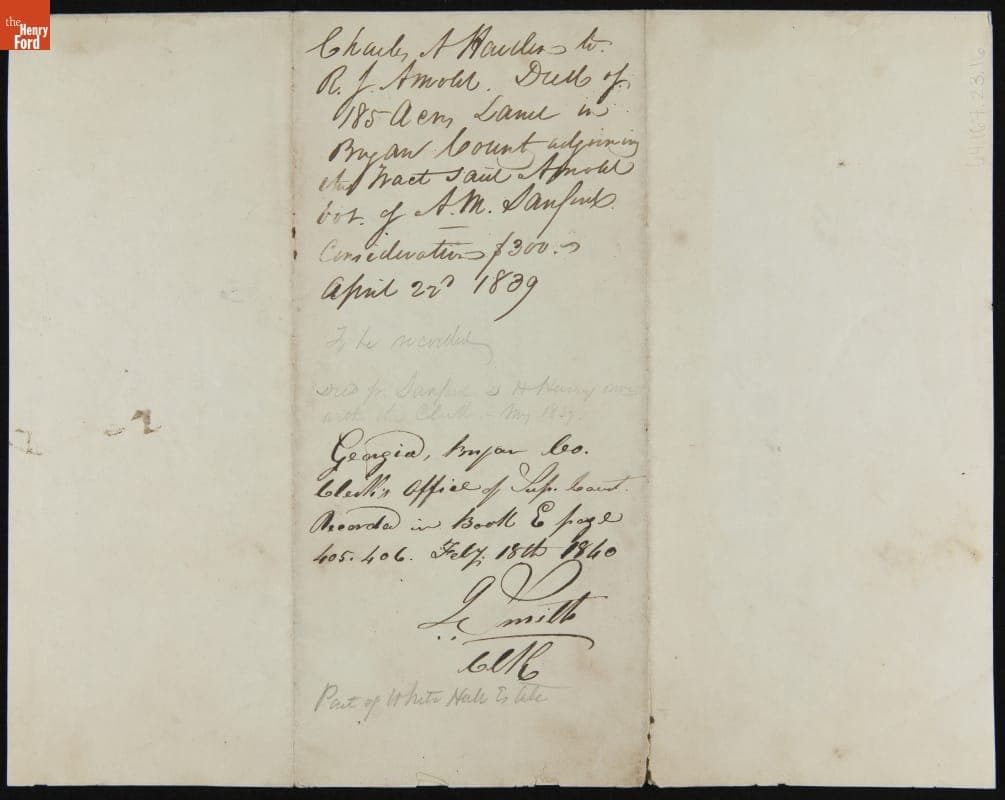 the
Henry
Ford
Charles A Hardin to
R. J. Arnold. Deed of
185 Acres Land in
Bryan Count adjoining
the Tract said Arnold
bot. of A. M. Sanford.
Consideration $300.
April 22d 1839
To be recorded
Deed fr. Sanford to H
with the Clerk - May 1839.
Georgia, Bryan Co.
Clerk's Office of Sup. Court.
Recorded in Book E page
405. 406. Feby. 18th 1840
Smith
Clk
Part of White Hall Estate
64.167.23.16